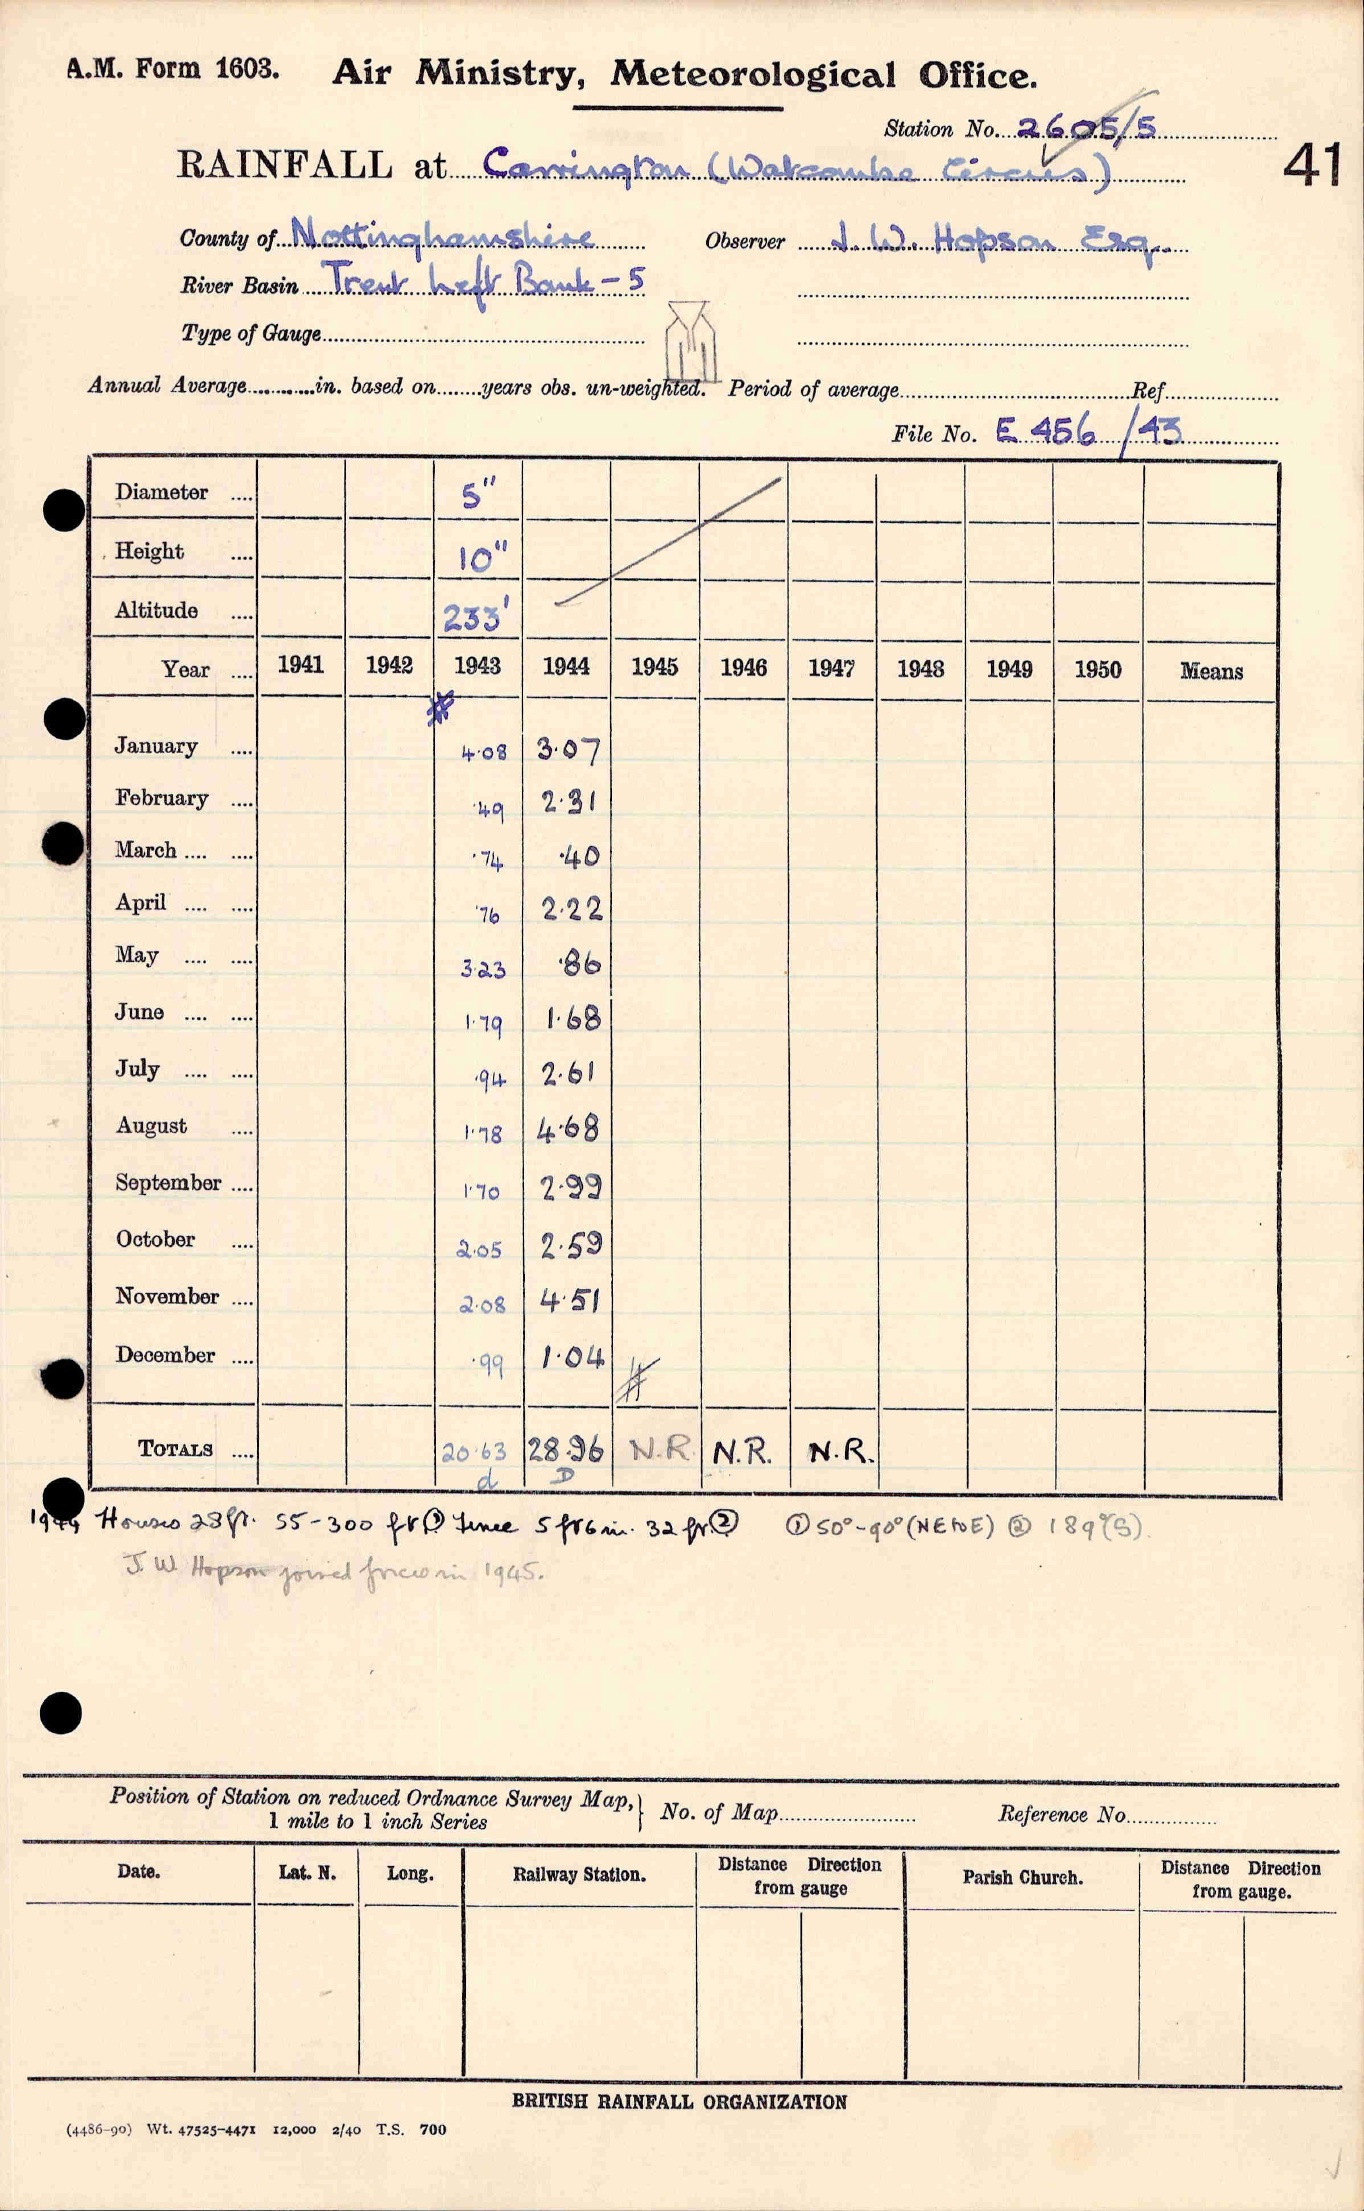 A.M. Form 1603. Air Ministry, Meteorological Office.
Station No. 2605/5
RAINFALL at Carrington (Watcombe Circus)
41
County of Nottinghamshire Observer J. W. Hopson Esq.
River Basin Trent Left Bank - 5
Type of Gauge
Annual Average in. based on years obs. un-weighted. Period of average Ref
File No. E 456 /43
Diameter .... 5"
Height .... 10"
Altitude .... 233'
Year .... 1941 1942 1943 1944 1945 1946 1947 1948 1949 1950 Means
January .... 4.08 3.07
February .... .49 2.31
March .... .... .74 .40
April .... .... .76 2.22
May .... .... 3.23 .86
June .... .... 1.79 1.68
July .... .... .94 2.61
August .... 1.78 4.68
September .... 1.70 2.99
October .... 2.05 2.59
November .... 2.08 4.51
December .... .99 1.04
TOTALS .... 20.63 28.96 N.R. N.R. N.R.
d D
1944 Houses 28ft. 55-300 ft ① Fence 5ft6in. 32ft. ② ① 50°-90° (NE to E) ② 189°(S).
J. W Hopson joined forces in 1945.
Position of Station on reduced Ordnance Survey Map, } No. of Map Reference No.
1 mile to 1 inch Series
Date. Lat. N. Long. Railway Station. Distance Direction Parish Church. Distance Direction
from gauge from gauge.
BRITISH RAINFALL ORGANIZATION
(4486-90) Wt. 47525-4471 12,000 2/40 T.S. 700